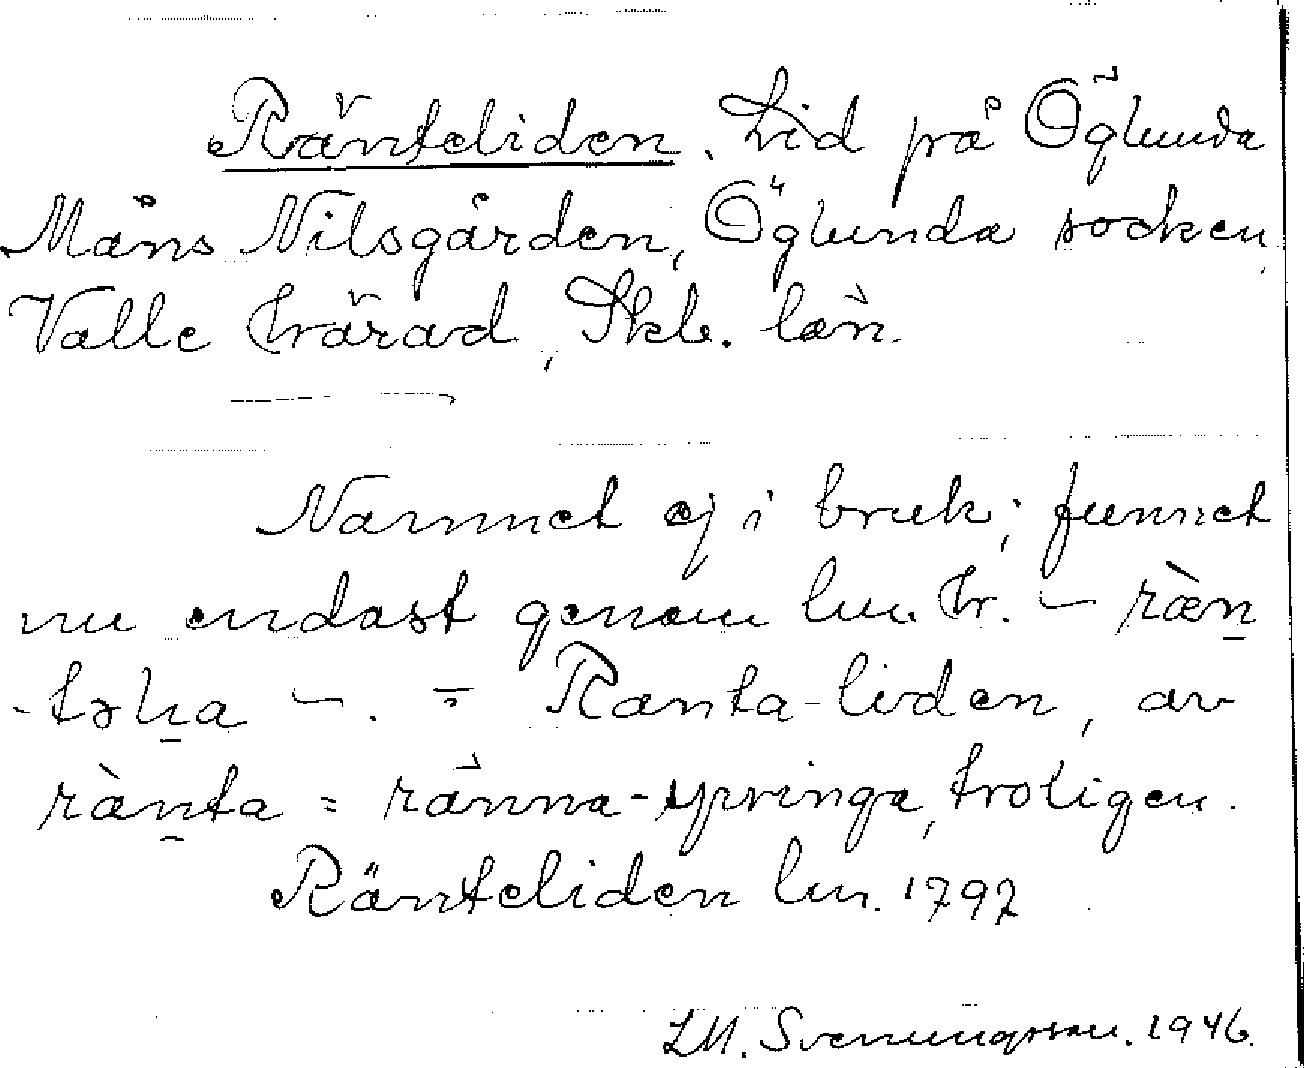 Ränteliden. Lid på Öglunda
Måns Nilsgården, Öglunda socken
Valle härad, Skb. län.
Namnet ej i bruk; funnet
nu endast genom lm. hr. – ræ̀n
-təlia –. = Ranta-liden, av
rænta = ränna-springa, troligen.
Ränteliden lm. 1797
LM. Svenungsson. 1946.